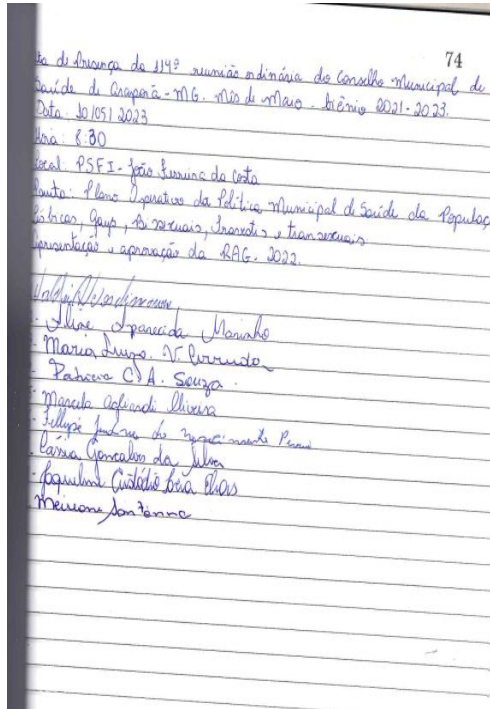 74
ta de Presença da 114ª reunião ordinária do Conselho Municipal de
Saúde de Araporã - MG. mês de Maio - biênio 2021-2023.
Data: 10/05/2023
Hora: 8:30
Local: PSFI - João Ferreira da Costa
Pauta: Plano Operativo da Política Municipal de Saúde da Populaç
Lésbicas, Gays, Bissexuais, Travestis e transexuais
Apresentação e aprovação da RAG. 2022.
- Aline Aparecida Marinho
- Maria Luiza V.
- Patricia C. A. Souza.
- Marcela Oliveira
- Fellipe de
- Cássia Gonçalves da Silva
- Custódio